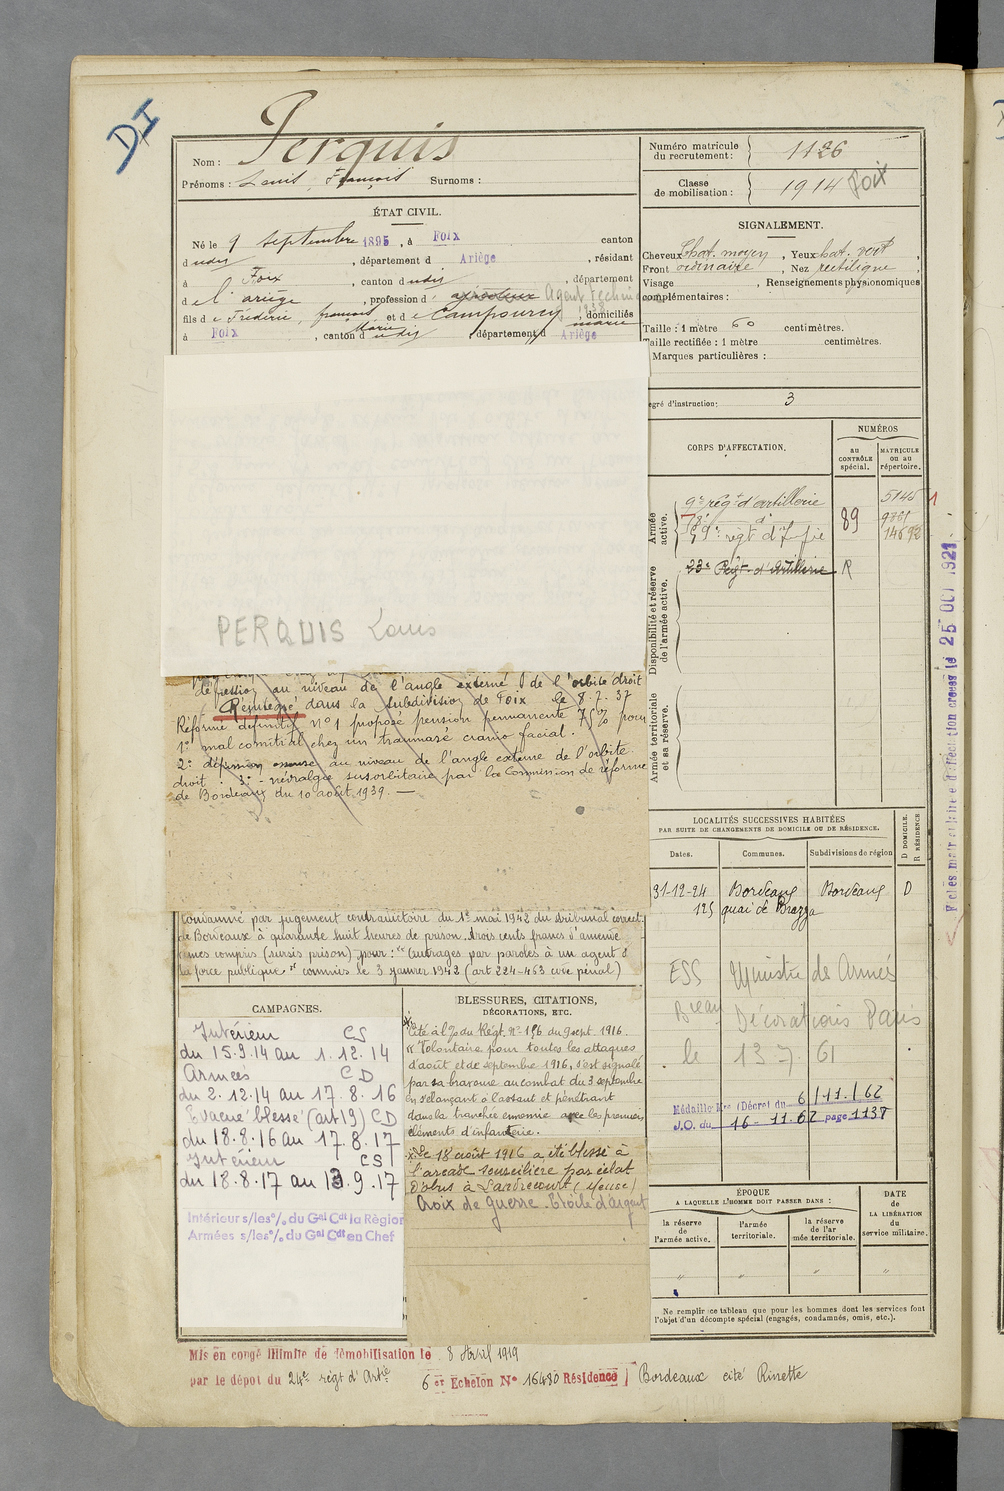 DI
Nom : Perquis
Prénoms : Louis, François Surnoms :
ÉTAT CIVIL.
Né le 9 septembre 1895, à Foix canton
d udis, département d Ariège, résidant
à Foix, canton d udis, département
de l'ariège, profession d Agent techni
fils de Frédéric, françois et de Campourcy, domiciliés
Marie marie
à Foix, canton d udis, département d Ariège
PERQUIS Louis
dépression au niveau de l'angle externe de l'orbite droit
Réintégré dans la subdivision de Foix le 8.2.37
Réformé définitif n°1 proposé pension permanente 75% pour
1° mal comitial chez un traumasé cranio facial.
2° dépression osseuse au niveau de l'angle externe de l'orbite
droit. 3° - névralgie susorbitaire par la Commission de réforme
de Bordeaux du 10 août 1939. —
Condamné par jugement contradictoire du 1er mai 1942 du tribunal correct.
de Bordeaux à quarante huit heures de prison, trois cents francs d'amende
(sursis prison) pour : "outrages par paroles à un agent d
la force publique" commis le 3 janvier 1942 (art 224-463 code pénal)
CAMPAGNES.
Intérieur CS
du 15.9.14 au 1.12.14
Armées CD
du 2.12.14 au 17.8.16
Evacué blessé (art 19) CD
du 18.8.16 au 17.8.17
Intérieur CS
du 18.8.17 au 13.9.17
Intérieur s/les °/. du Gal Cdt la Région
Armées s/les °/. du Gal Cdt en Chef
BLESSURES, CITATIONS,
DÉCORATIONS, ETC.
Cité à l'% du Régt. n° 186 du 9 sept. 1916.
"Volontaire pour toutes les attaques
d'août et de septembre 1916, s'est signalé
par sa bravoure au combat du 3 septembre
en s'élançant à l'assaut et pénétrant
dans la tranchée ennemie avec les premiers
éléments d'infanterie.
Le 18 août 1916 a été blessé à
l'arcade sourcilière par éclat
d'obus à (Meuse)
Croix de guerre - Etoile d'argent
Numéro matricule
du recrutement : 1126
Classe
de mobilisation : 1914 Foix
SIGNALEMENT.
Cheveux chat. moyen, Yeux chat. vert
Front ordinaire, Nez rectiligne
Visage , Renseignements physionomiques
complémentaires :
Taille : 1 mètre 60 centimètres.
Taille rectifiée : 1 mètre centimètres.
Marques particulières :
egré d'instruction : 3
CORPS D'AFFECTATION.
NUMÉROS
au
CONTRÔLE
spécial.
MATRICULE
ou au
répertoire.
Armée
active.
9e régt d'artillerie
59e régt d'Infie
89
5145
14692
Disponibilité et réserve
de l'armée active.
23e Régt d'Artillerie R
Armée territoriale
et sa réserve.
LOCALITÉS SUCCESSIVES HABITÉES
PAR SUITE DE CHANGEMENTS DE DOMICILE OU DE RÉSIDENCE.
D DOMICILE.
R RÉSIDENCE
Dates. Communes. Subdivisions de région
31-12-24 Bordeaux Bordeaux D
125 quai de Brazza
ESS Ministre des Armées
Bureau Décorations Paris
le 13 7. 61
Médaille Mre (Décret du 6/11/62
J.O. du 16-11.62 page 1137
ÉPOQUE
A LAQUELLE L'HOMME DOIT PASSER DANS :
la réserve
de
l'armée active.
l'armée
territoriale.
la réserve
de l'ar
mée territoriale.
DATE
de
LA LIBÉRATION
du
service militaire.
" " " "
Ne remplir ce tableau que pour les hommes dont les services font
l'objet d'un décompte spécial (engagés, condamnés, omis, etc.).
25 OCT 1921
Mis en congé illimité de démobilisation le 8 Avril 1919
par le dépôt du 24e régt d'Artie 6er Echelon N° 16480 Résidence Bordeaux cité Rinette